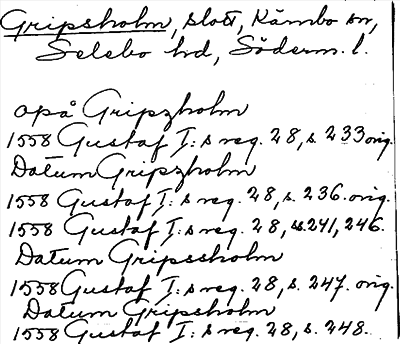 Gripsholm, slott, Kärnbo sn,
Selebo hd, Söderm. l.
opå Gripzholm
1558 Gustaf I:s reg. 28, s. 233 orig.
Datum Gripzholm
1558 Gustaf I:s reg. 28, s. 236. orig.
1558 Gustaf I:s reg. 28, ss. 241, 246.
Datum Gripssholm
1558 Gustaf I:s reg. 28, s. 247. orig.
Datum Gripsholm
1558 Gustaf I:s reg. 28, s. 248.